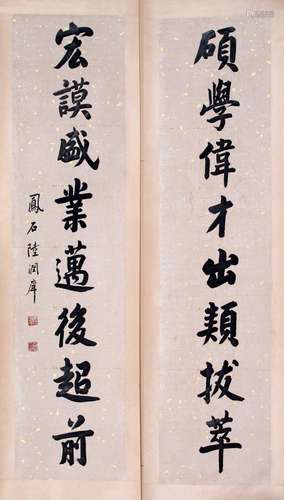 碩學偉才出類拔萃
宏謨盛業邁後超前
鳳石陸潤庠